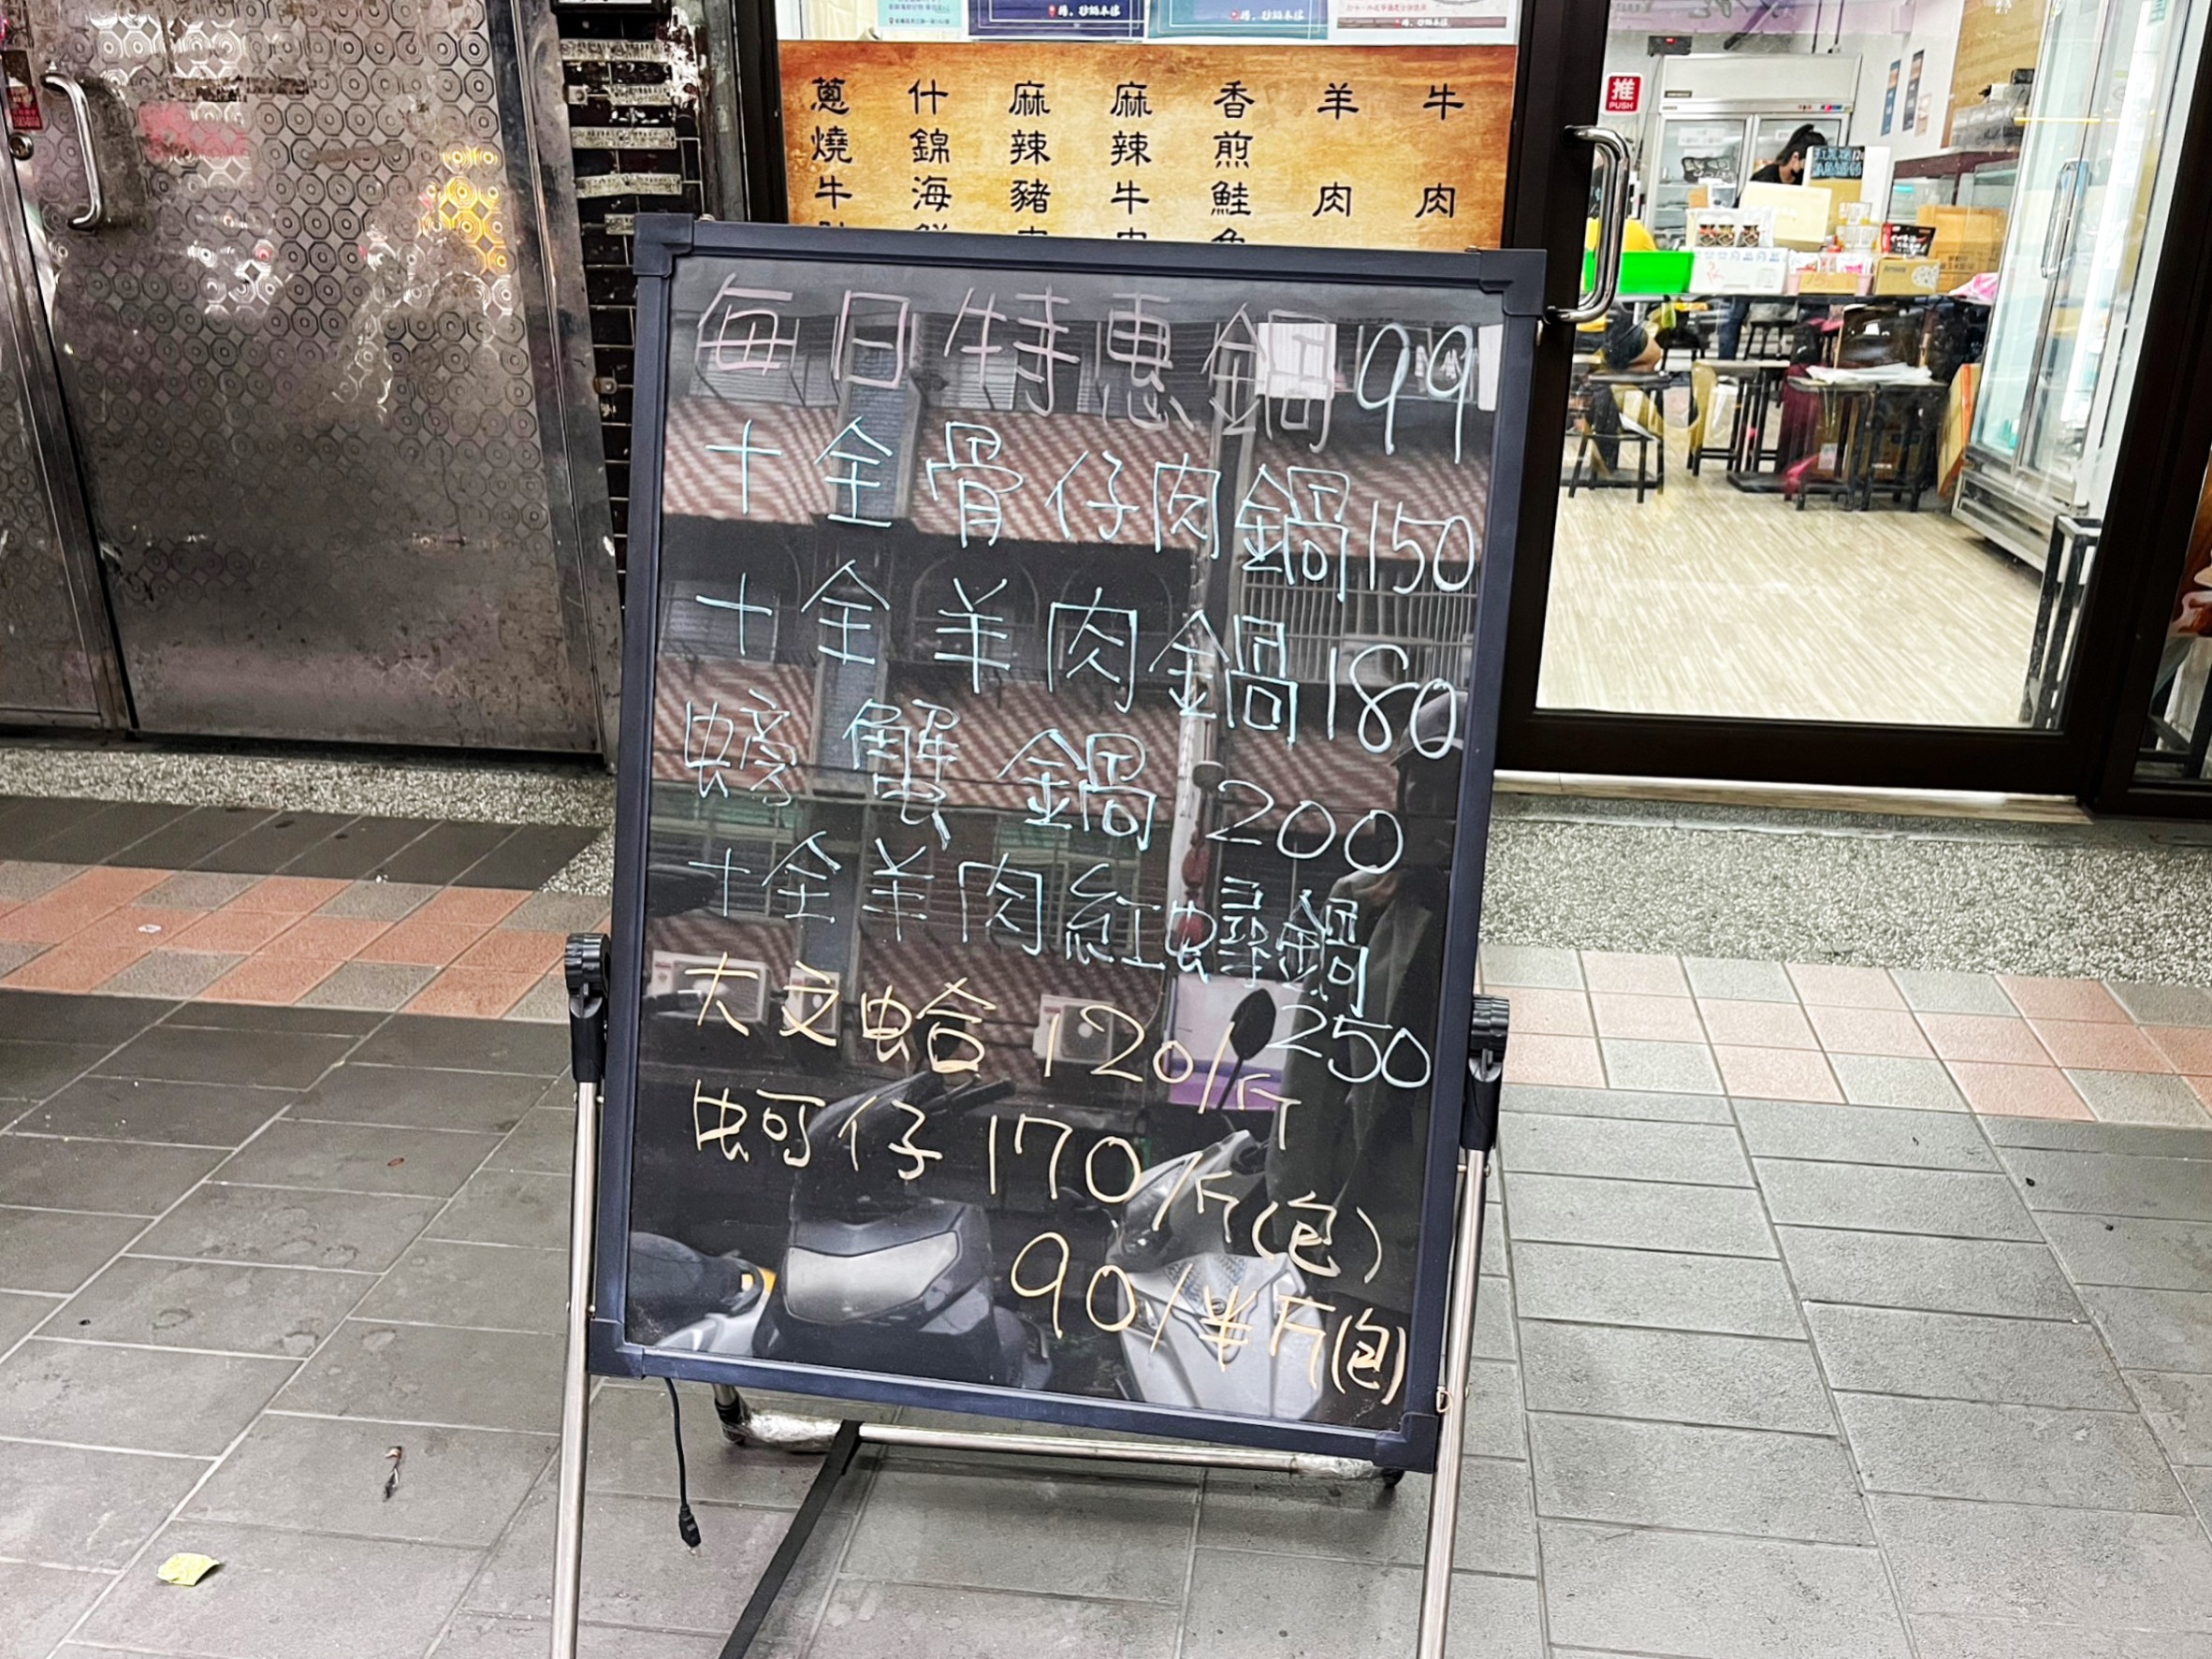 蔥燒牛
什錦海鮮
麻辣豬
麻辣牛
香煎鮭魚
羊肉
牛肉
推
PUSH
每日特惠鍋99
十全骨仔肉鍋150
十全羊肉鍋180
螃蟹鍋200
十全羊肉紅蟳鍋
250
大文蛤 120/斤
蚵仔170/斤(包)
90/半斤(包)